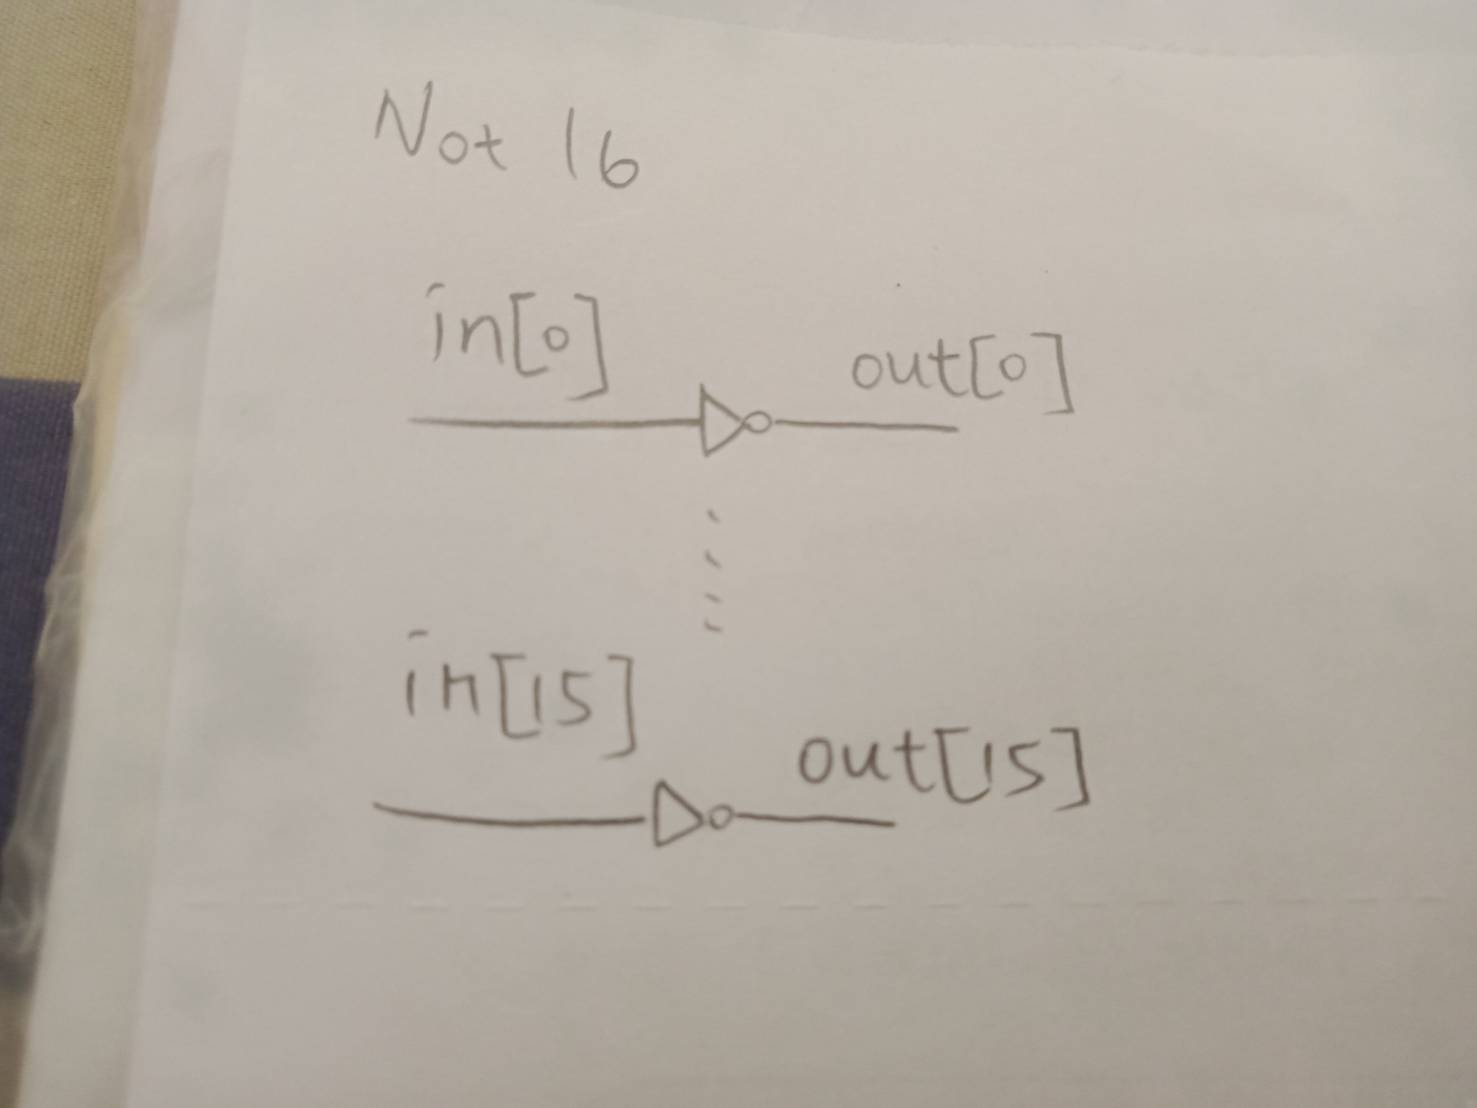 Not 16
in[0]
out[0]
in[15]
out[15]